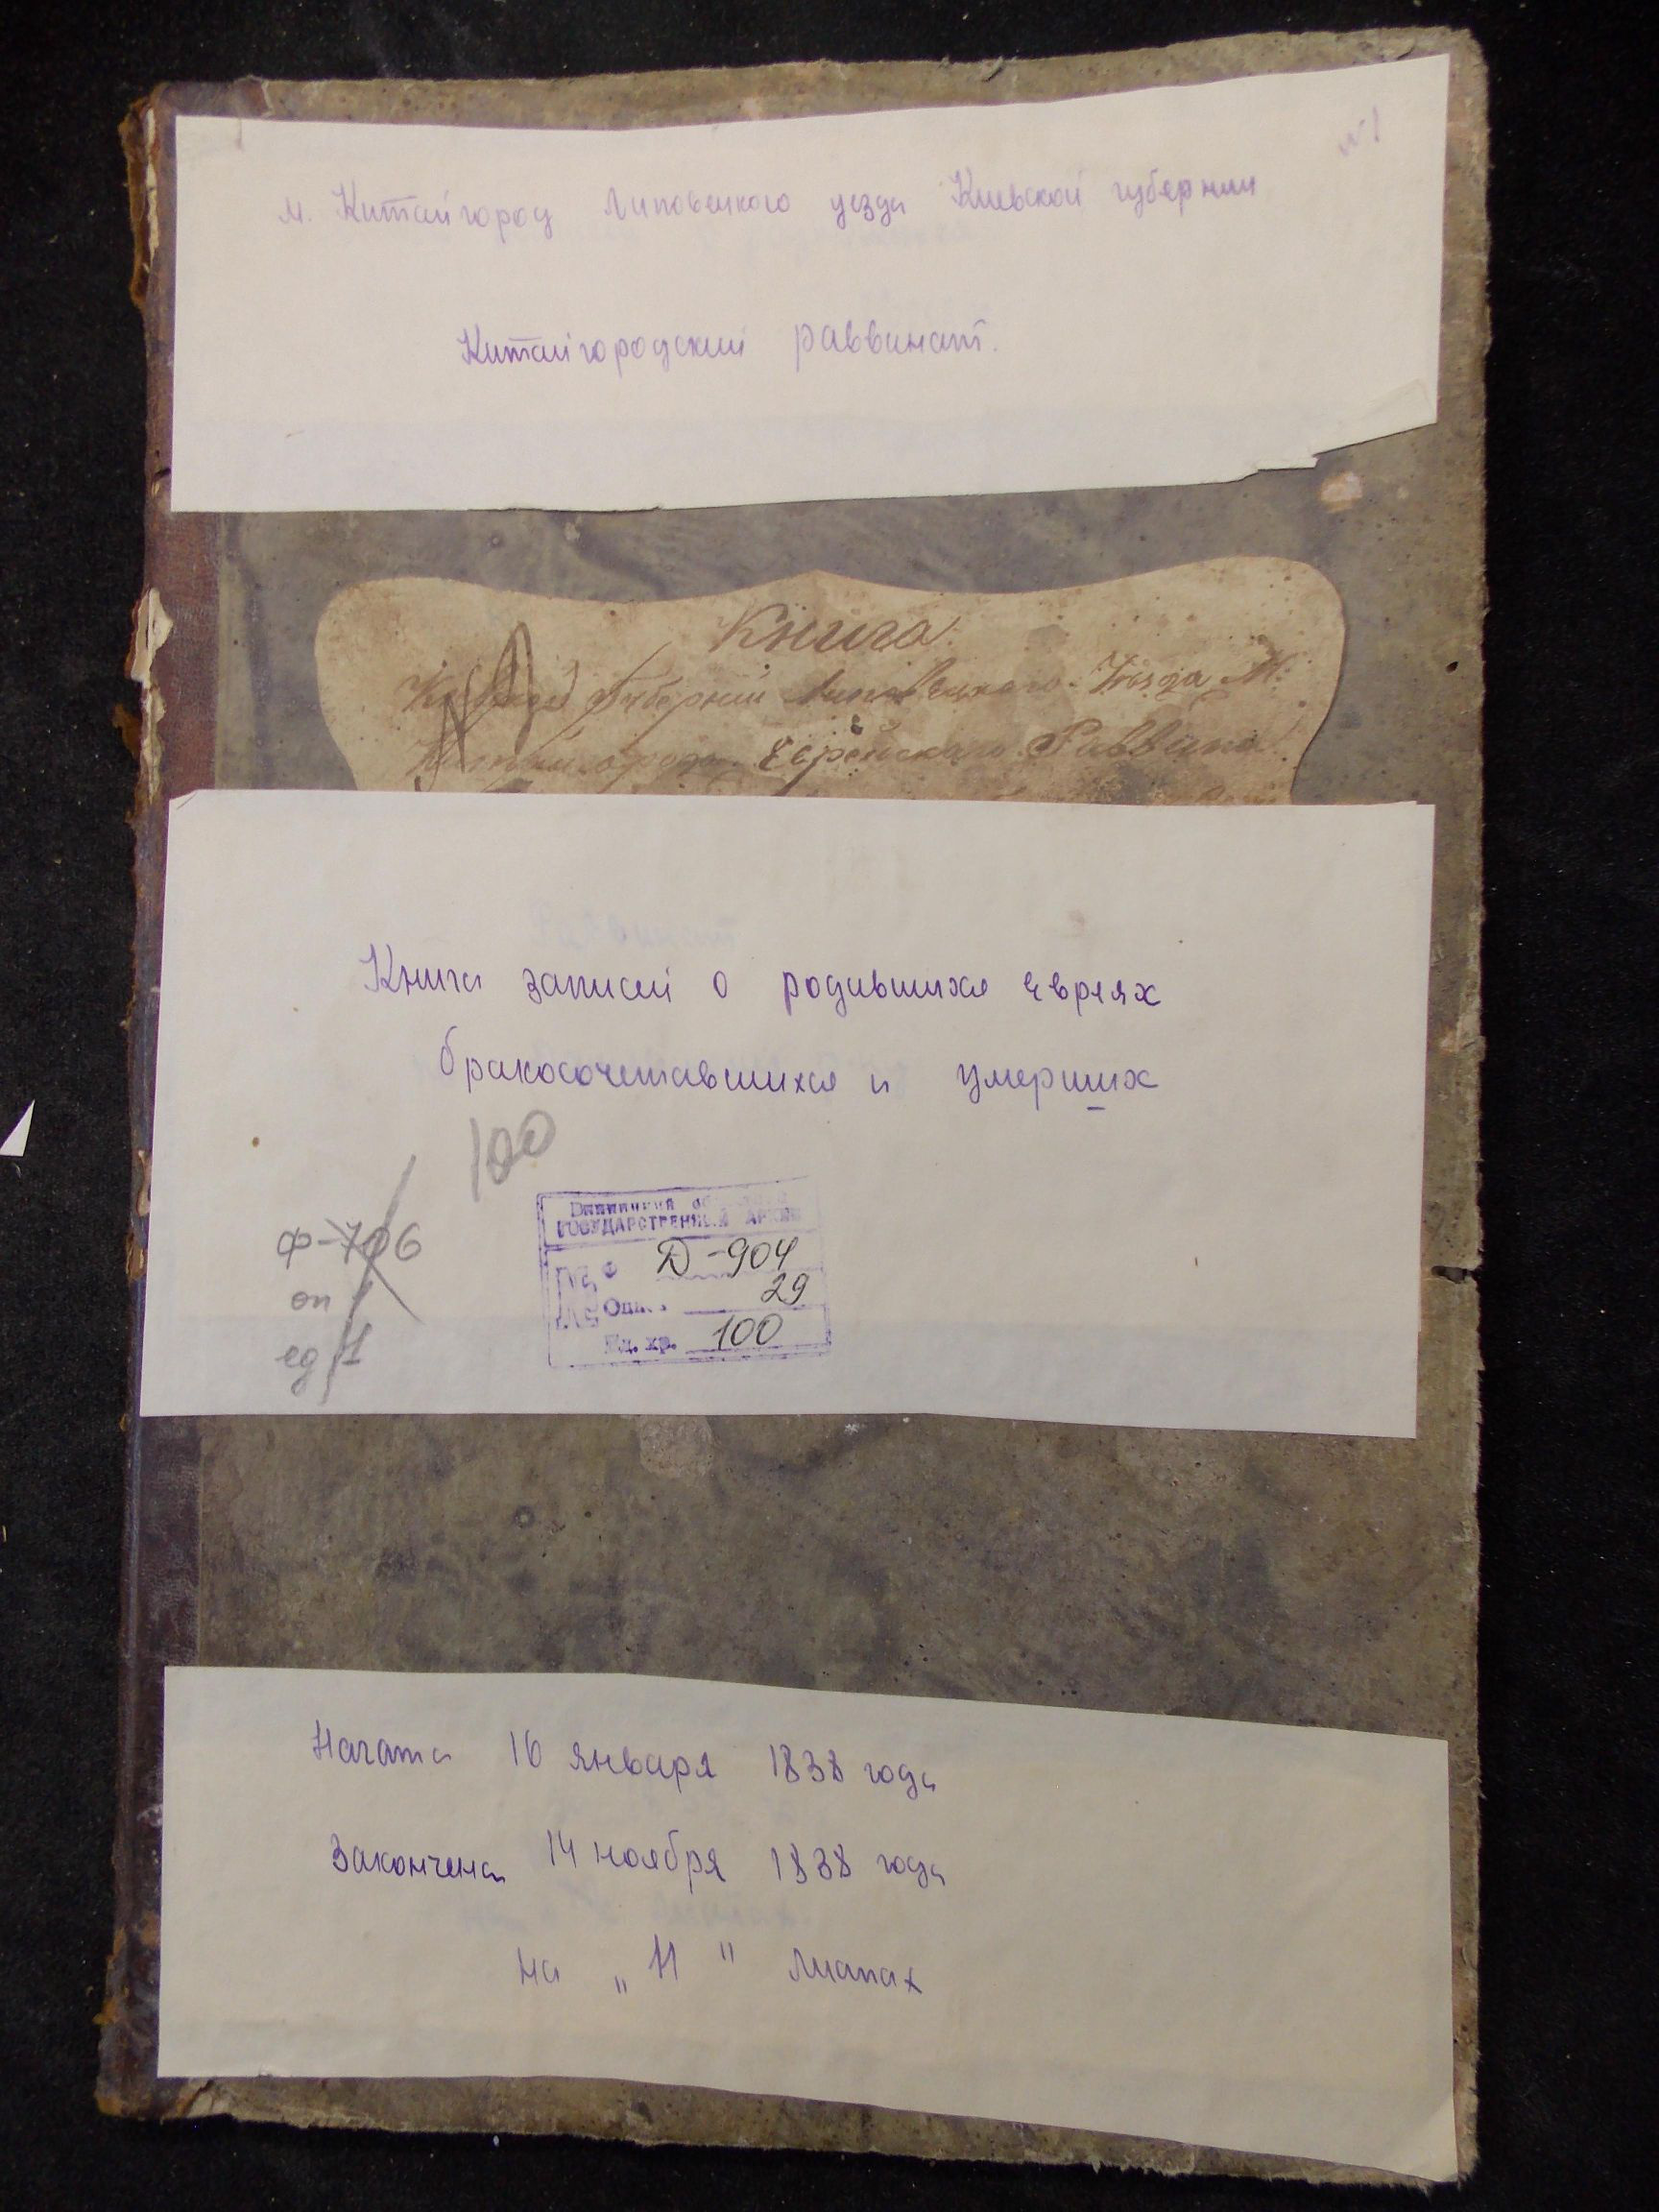 №1
м. Китайгород Липовецкого уезда Киевской губернии
Китайгородский раввинат.
Книга
Губернии Липовецкаго Уезда М:
Еврейскаго Раввина
Книга записей о родившихся евреях
бракосочетавшихся и умерших
100
ф-706
оп 1
ед 1
ГОСУДАРСТВЕННЫЙ АРХИВ
Ф Д-904
Опись 29
Ед. хр. 100
Начата 16 января 1838 года
Закончена 14 ноября 1838 года
на „ 11 " листах